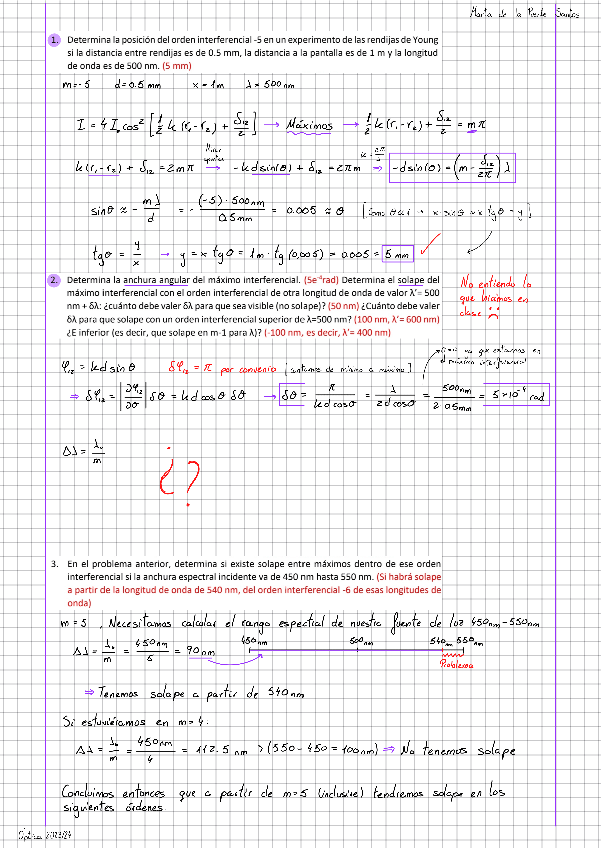 Marta de la Puente Santos
1. Determina la posición del orden interferencial -5 en un experimento de las rendijas de Young
si la distancia entre rendijas es de 0.5 mm, la distancia a la pantalla es de 1 m y la longitud
de onda es de 500 nm. (5 mm)
m=-5 d=0.5 mm x=1m λ=500 nm
I = 4 I₀ cos² [½ k(r₁-r₂) + δ₁₂/2] → Máximos → ½ k(r₁-r₂) + δ₁₂/2 = mπ
k(r₁-r₂) + δ₁₂ = 2mπ → -kd sin(θ) + δ₁₂ = 2πm → k = 2π/λ -d sin(θ) = (m - δ₁₂/2π) λ
sinθ ≈ - mλ/d = - (-5)·500nm / 0.5 mm = 0.005 ≈ θ
tgθ = y/x → y = x tgθ = 1m · tg(0,005) = 0.005 = 5 mm
2. Determina la anchura angular del máximo interferencial. (5e⁻⁴rad) Determina el solape del
máximo interferencial con el orden interferencial de otra longitud de onda de valor λ'= 500
nm + δλ: ¿cuánto debe valer δλ para que sea visible (no solape)? (50 nm) ¿Cuánto debe valer
δλ para que solape con un orden interferencial superior de λ=500 nm? (100 nm, λ'= 600 nm)
¿E inferior (es decir, que solape en m-1 para λ)? (-100 nm, es decir, λ'= 400 nm)
No entiendo lo
que hicimos en
clase
φ₁₂ = kd sinθ δφ₁₂ = π por convenio
cosθ≈1 ya que estamos en
el máximo interferencial
⇒ δφ₁₂ = |∂φ₁₂/∂θ| δθ = kd cosθ δθ → δθ = π/kd cosθ = λ/2d cosθ = 500nm/2·0.5mm = 5·10⁻⁴ rad
Δλ = λ₀/m
¿?
3. En el problema anterior, determina si existe solape entre máximos dentro de ese orden
interferencial si la anchura espectral incidente va de 450 nm hasta 550 nm. (Si habrá solape
a partir de la longitud de onda de 540 nm, del orden interferencial -6 de esas longitudes de
onda)
m=5, Necesitamos calcular el rango espectral de nuestra fuente de luz 450nm-550nm
Δλ = λ₀/m = 450nm/5 = 90nm 450nm 500nm 540nm 550nm
Problema
⇒ Tenemos solape a partir de 540nm
Si estuviéramos en m=4:
Δλ = λ₀/m = 450nm/4 = 112.5 nm > (550-450=100nm) ⇒ No tenemos solape
Concluimos entonces que a partir de m=5 (inclusive) tendremos solape en los
siguientes órdenes.
Óptica 2023/24